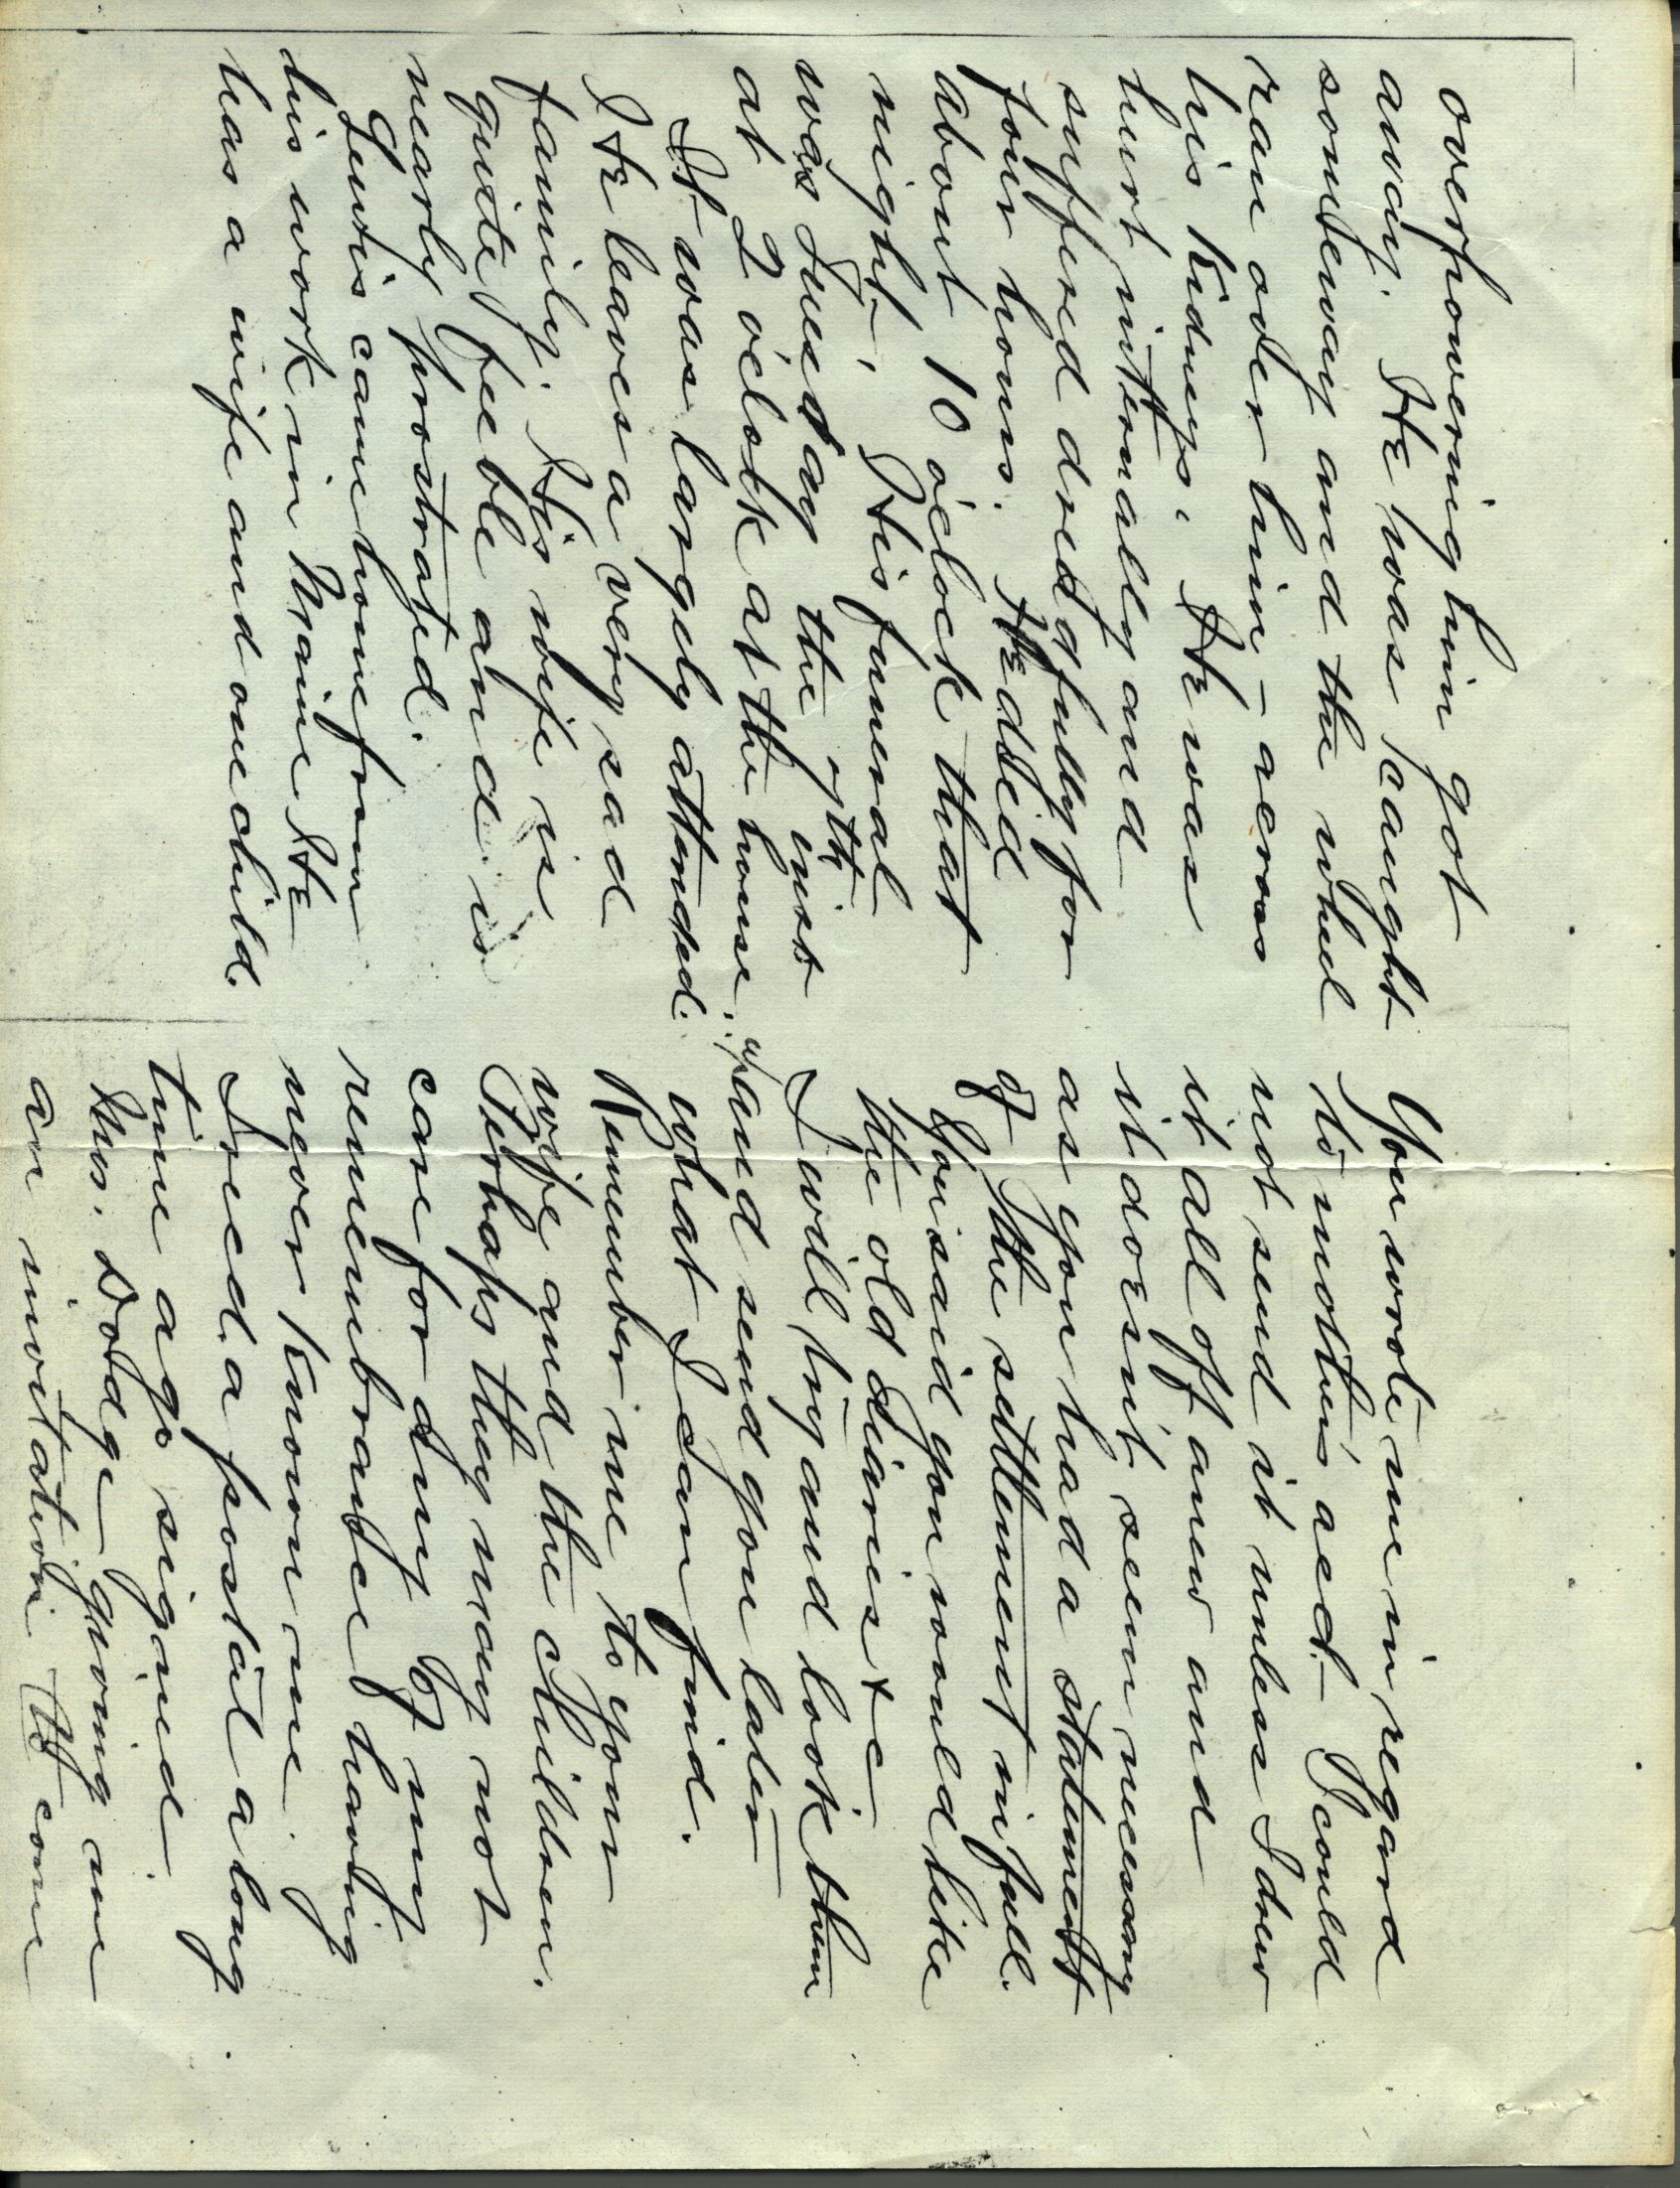 overpowering him got
away. He was caught
someway and the wheel
ran over him - across
his kidneys. He was
hurt internally and
suffered dreadfully for
four hours. He died
about 10 o'clock that
night. His funeral
was Tuesday the 7th inst
at 2 o'clock at the house.
It was largely attended.
He leaves a very sad
family. His wife is
quite feeble and is
nearly prostrated.
Lewis came home from
his work in Maine He
has a wife and one child.
You wrote me in regard
to mother's acct - I could
not send it unless I drew
it all off anew and
it doesn't seem necessary
as you had a statement
of the settlement in full.
You said you would like
the old diaries &c -
I will try and look them
up and send you later
what I can find.
Remember me to your
wife and the children.
Perhaps they may not
care for any of my
remembrance having
never known me.
I rec'd a postal a long
time ago signed
Mrs. Dodge - giving me
an invitation to come